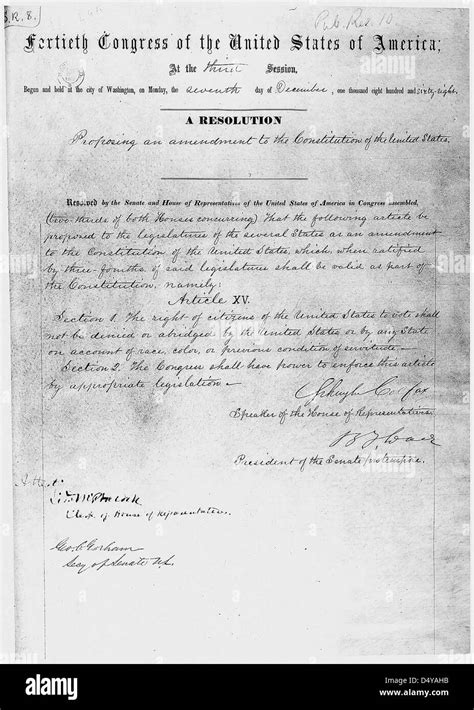 S.R. 8.
Pub. Res. 10.
Fortieth Congress of the United States of America;
At the third Session,
Begun and held at the city of Washington, on Monday, the seventh day of December, one thousand eight hundred and sixty-eight.
A RESOLUTION
Proposing an amendment to the Constitution of the United States.
Resolved by the Senate and House of Representatives of the United States of America in Congress assembled,
(two-thirds of both Houses concurring) That the following article be
proposed to the legislatures of the several States as an amendment
to the Constitution of the United States, which, when ratified
by three-fourths of said legislatures shall be valid as part of
the Constitution, namely:
Article XV.
Section 1. The right of citizens of the United States to vote shall
not be denied or abridged by the United States or by any State
on account of race, color, or previous condition of servitude—
Section 2. The Congress shall have power to enforce this article
by appropriate legislation—
Schuyler Colfax
Speaker of the House of Representatives.
B F Wade
President of the Senate pro tempore.
Attest:
Clerk of House of Representatives.
Geo. C. Gorham
Secy of Senate U.S.
alamy
alamy
alamy
Image ID: D4YAHB
www.alamy.com